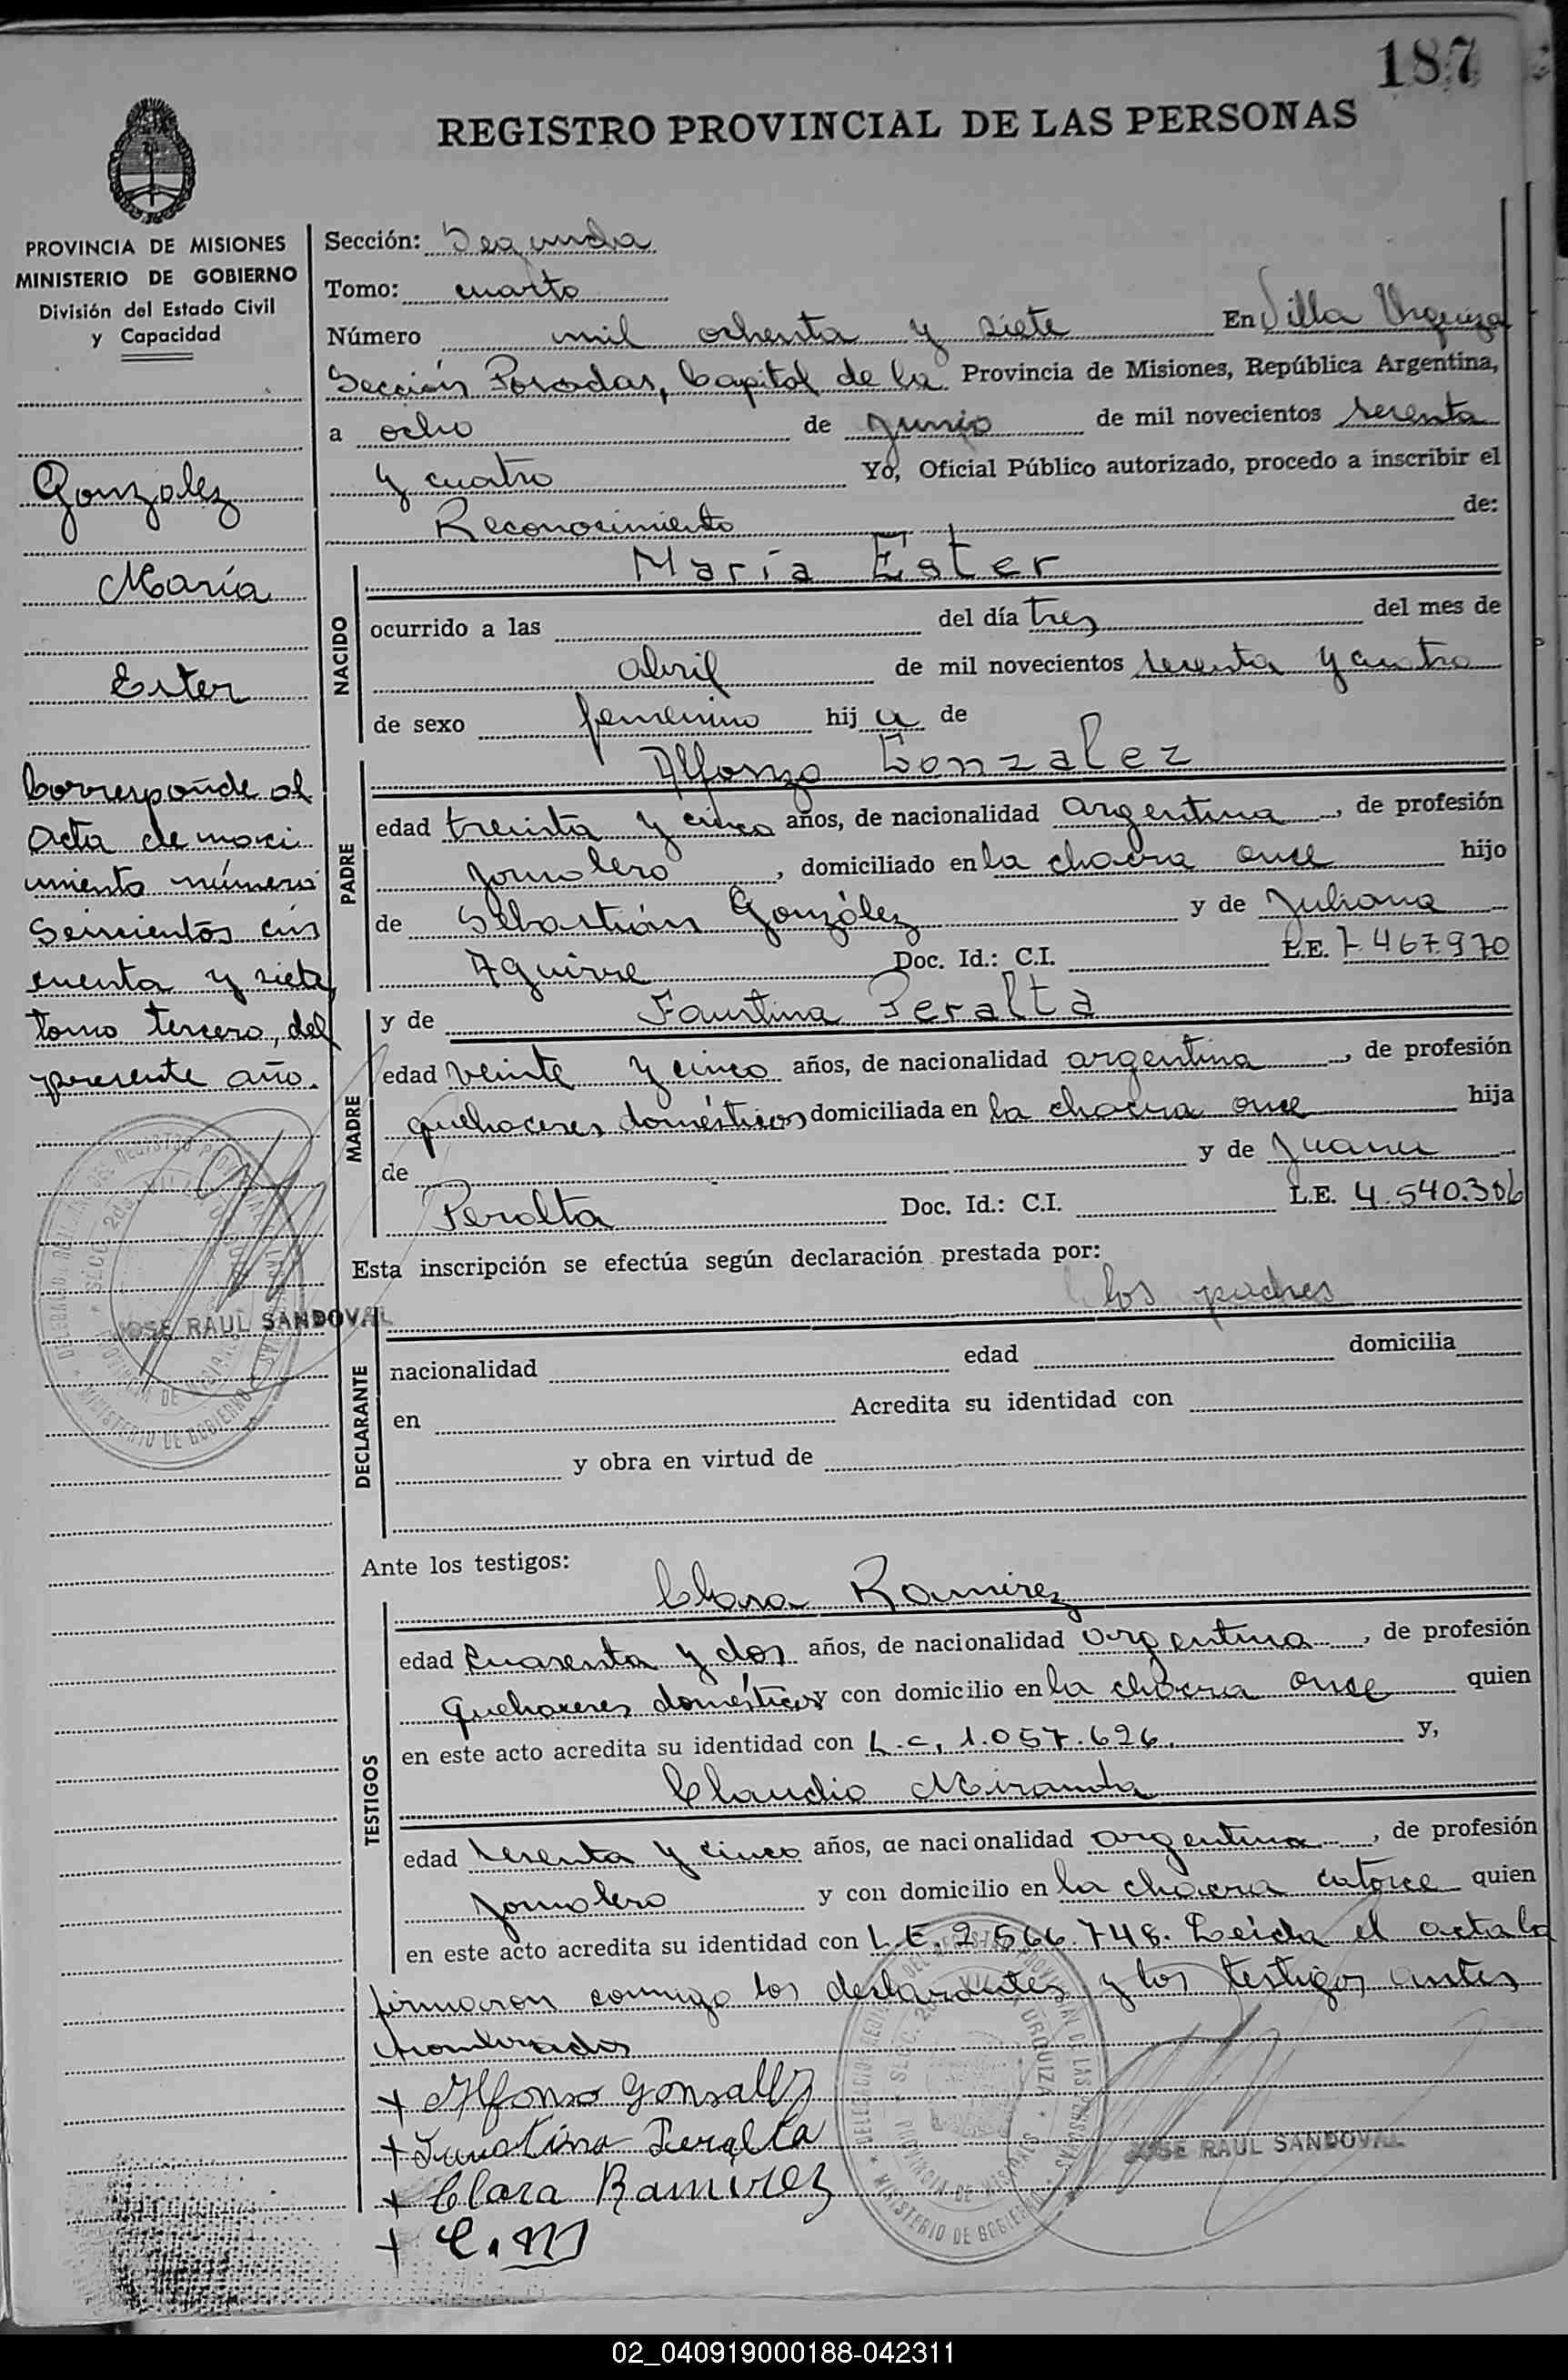 187
REGISTRO PROVINCIAL DE LAS PERSONAS
PROVINCIA DE MISIONES
MINISTERIO DE GOBIERNO
División del Estado Civil
y Capacidad
Gonzalez
María
Ester
Corresponde al
acta de naci
miento número
Seiscientos cin
cuenta y siete,
tomo tercero, del
presente año.
JOSE RAUL SANDOVAL
Sección: Segunda
Tomo: cuarto
Número mil ochenta y siete En Villa Urquiza
Sección Posadas, Capital de la Provincia de Misiones, República Argentina,
a ocho de Junio de mil novecientos setenta
y cuatro Yo, Oficial Público autorizado, procedo a inscribir el
Reconocimiento de:
NACIDO
María Ester
ocurrido a las del día tres del mes de
abril de mil novecientos setenta y cuatro
de sexo femenino hij a de
PADRE
Alfonzo Gonzalez
edad treinta y cinco años, de nacionalidad argentina, de profesión
Jornalero, domiciliado en la chacra once hijo
de Sebastián González y de Juliana
Aguirre Doc. Id.: C.I. L.E. 7.467.970
MADRE
y de Faustina Peralta
edad veinte y cinco años, de nacionalidad argentina, de profesión
quehaceres domésticos domiciliada en la chacra once hija
de y de Juana
Peralta Doc. Id.: C.I. L.E. 4.540.386
Esta inscripción se efectúa según declaración prestada por:
DECLARANTE
los padres
nacionalidad edad domicilia
en Acredita su identidad con
y obra en virtud de
Ante los testigos:
TESTIGOS
Clara Ramirez
edad Cuarenta y dos años, de nacionalidad argentina, de profesión
quehaceres domésticos y con domicilio en la chacra once quien
en este acto acredita su identidad con L.C. 1.057.626. y,
Claudio Miranda
edad sesenta y cinco años, de nacionalidad argentina, de profesión
Jornalero y con domicilio en la chacra catorce quien
en este acto acredita su identidad con L.E. 2.566.748. Leída el acta la
firmaron conmigo los declarantes y los testigos antes
nombrados
+ Alfonso Gonsallz
+ Faustina Peralta
+ Clara Ramirez
+ C.M
JOSE RAUL SANDOVAL
02_040919000188-042311